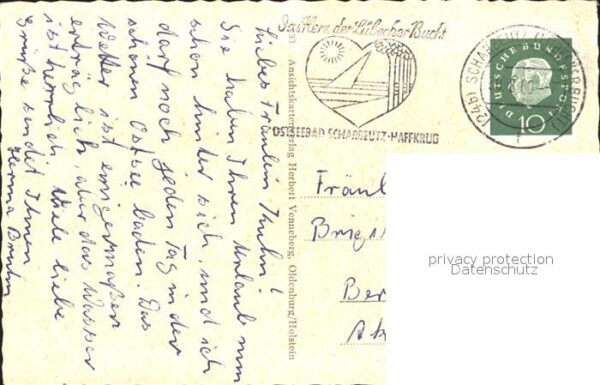 Liebes Fräulein Kuhn!
Sie haben Ihren Urlaub nun
schon hinter sich, und ich
darf noch jeden Tag in der
schönen Ostsee baden. Das
Wetter ist einigermaßen
erträglich aber das Wasser
ist herrlich. Viele liebe
Grüße sendet Ihnen
Herma
Ansichtskartenverlag Herbert Venneberg, Oldenburg/Holstein
Das Herz der Lübecker Bucht
OSTSEEBAD SCHARBEUTZ-HAFFKRUG
(24b) SCHARBEUTZ
DEUTSCHE BUNDESPOST
10
Fräul
Ber
privacy protection
Datenschutz